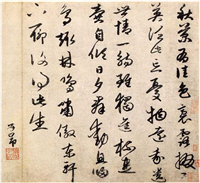 秋菊有佳色裛露掇其
英汎此忘憂物遠我遺
世情一觴雖獨進杯盡
壺自傾日入群動息歸
鳥趨林鳴嘯傲東軒
下聊復得此生
子昂